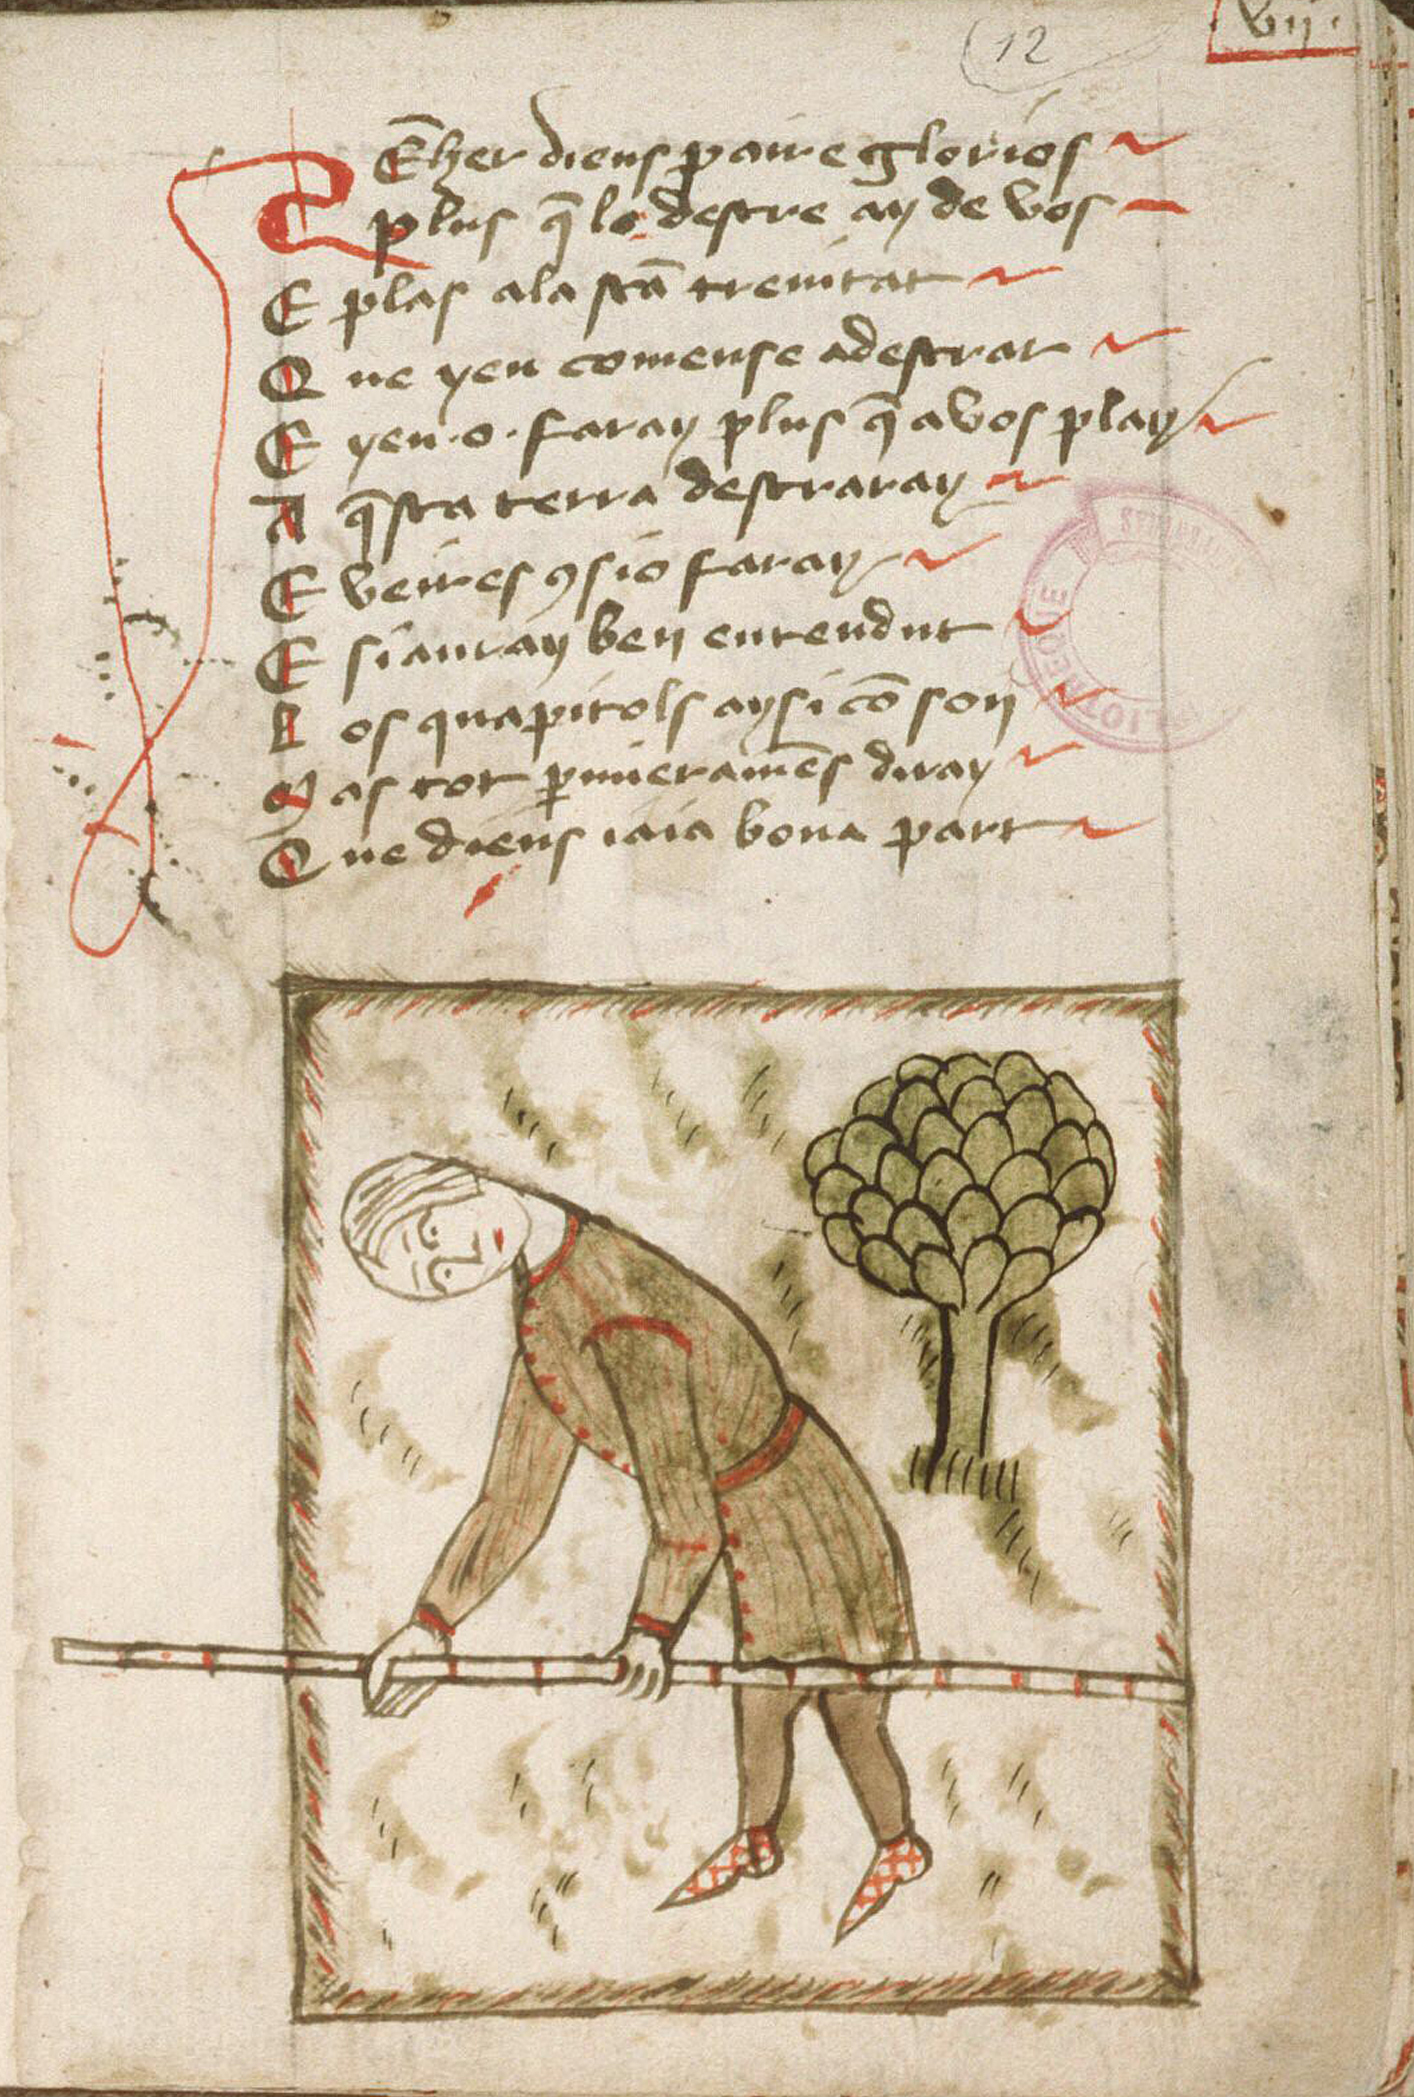 12
vij.
Sēher dieus paire glorios
plus q̄ lo destre ay de vos
E plas ala sc̄a trenitat
Que yeu comense adestrar
E yeu.o.faray plus q̄ a vos play
A q̄sta terra destraray
E veires ꝯsio faray
E si auray ben entendut
Los quapitols aysi cō son
Mas tot p̄mieramēs diray
Que dieus iaia bona part